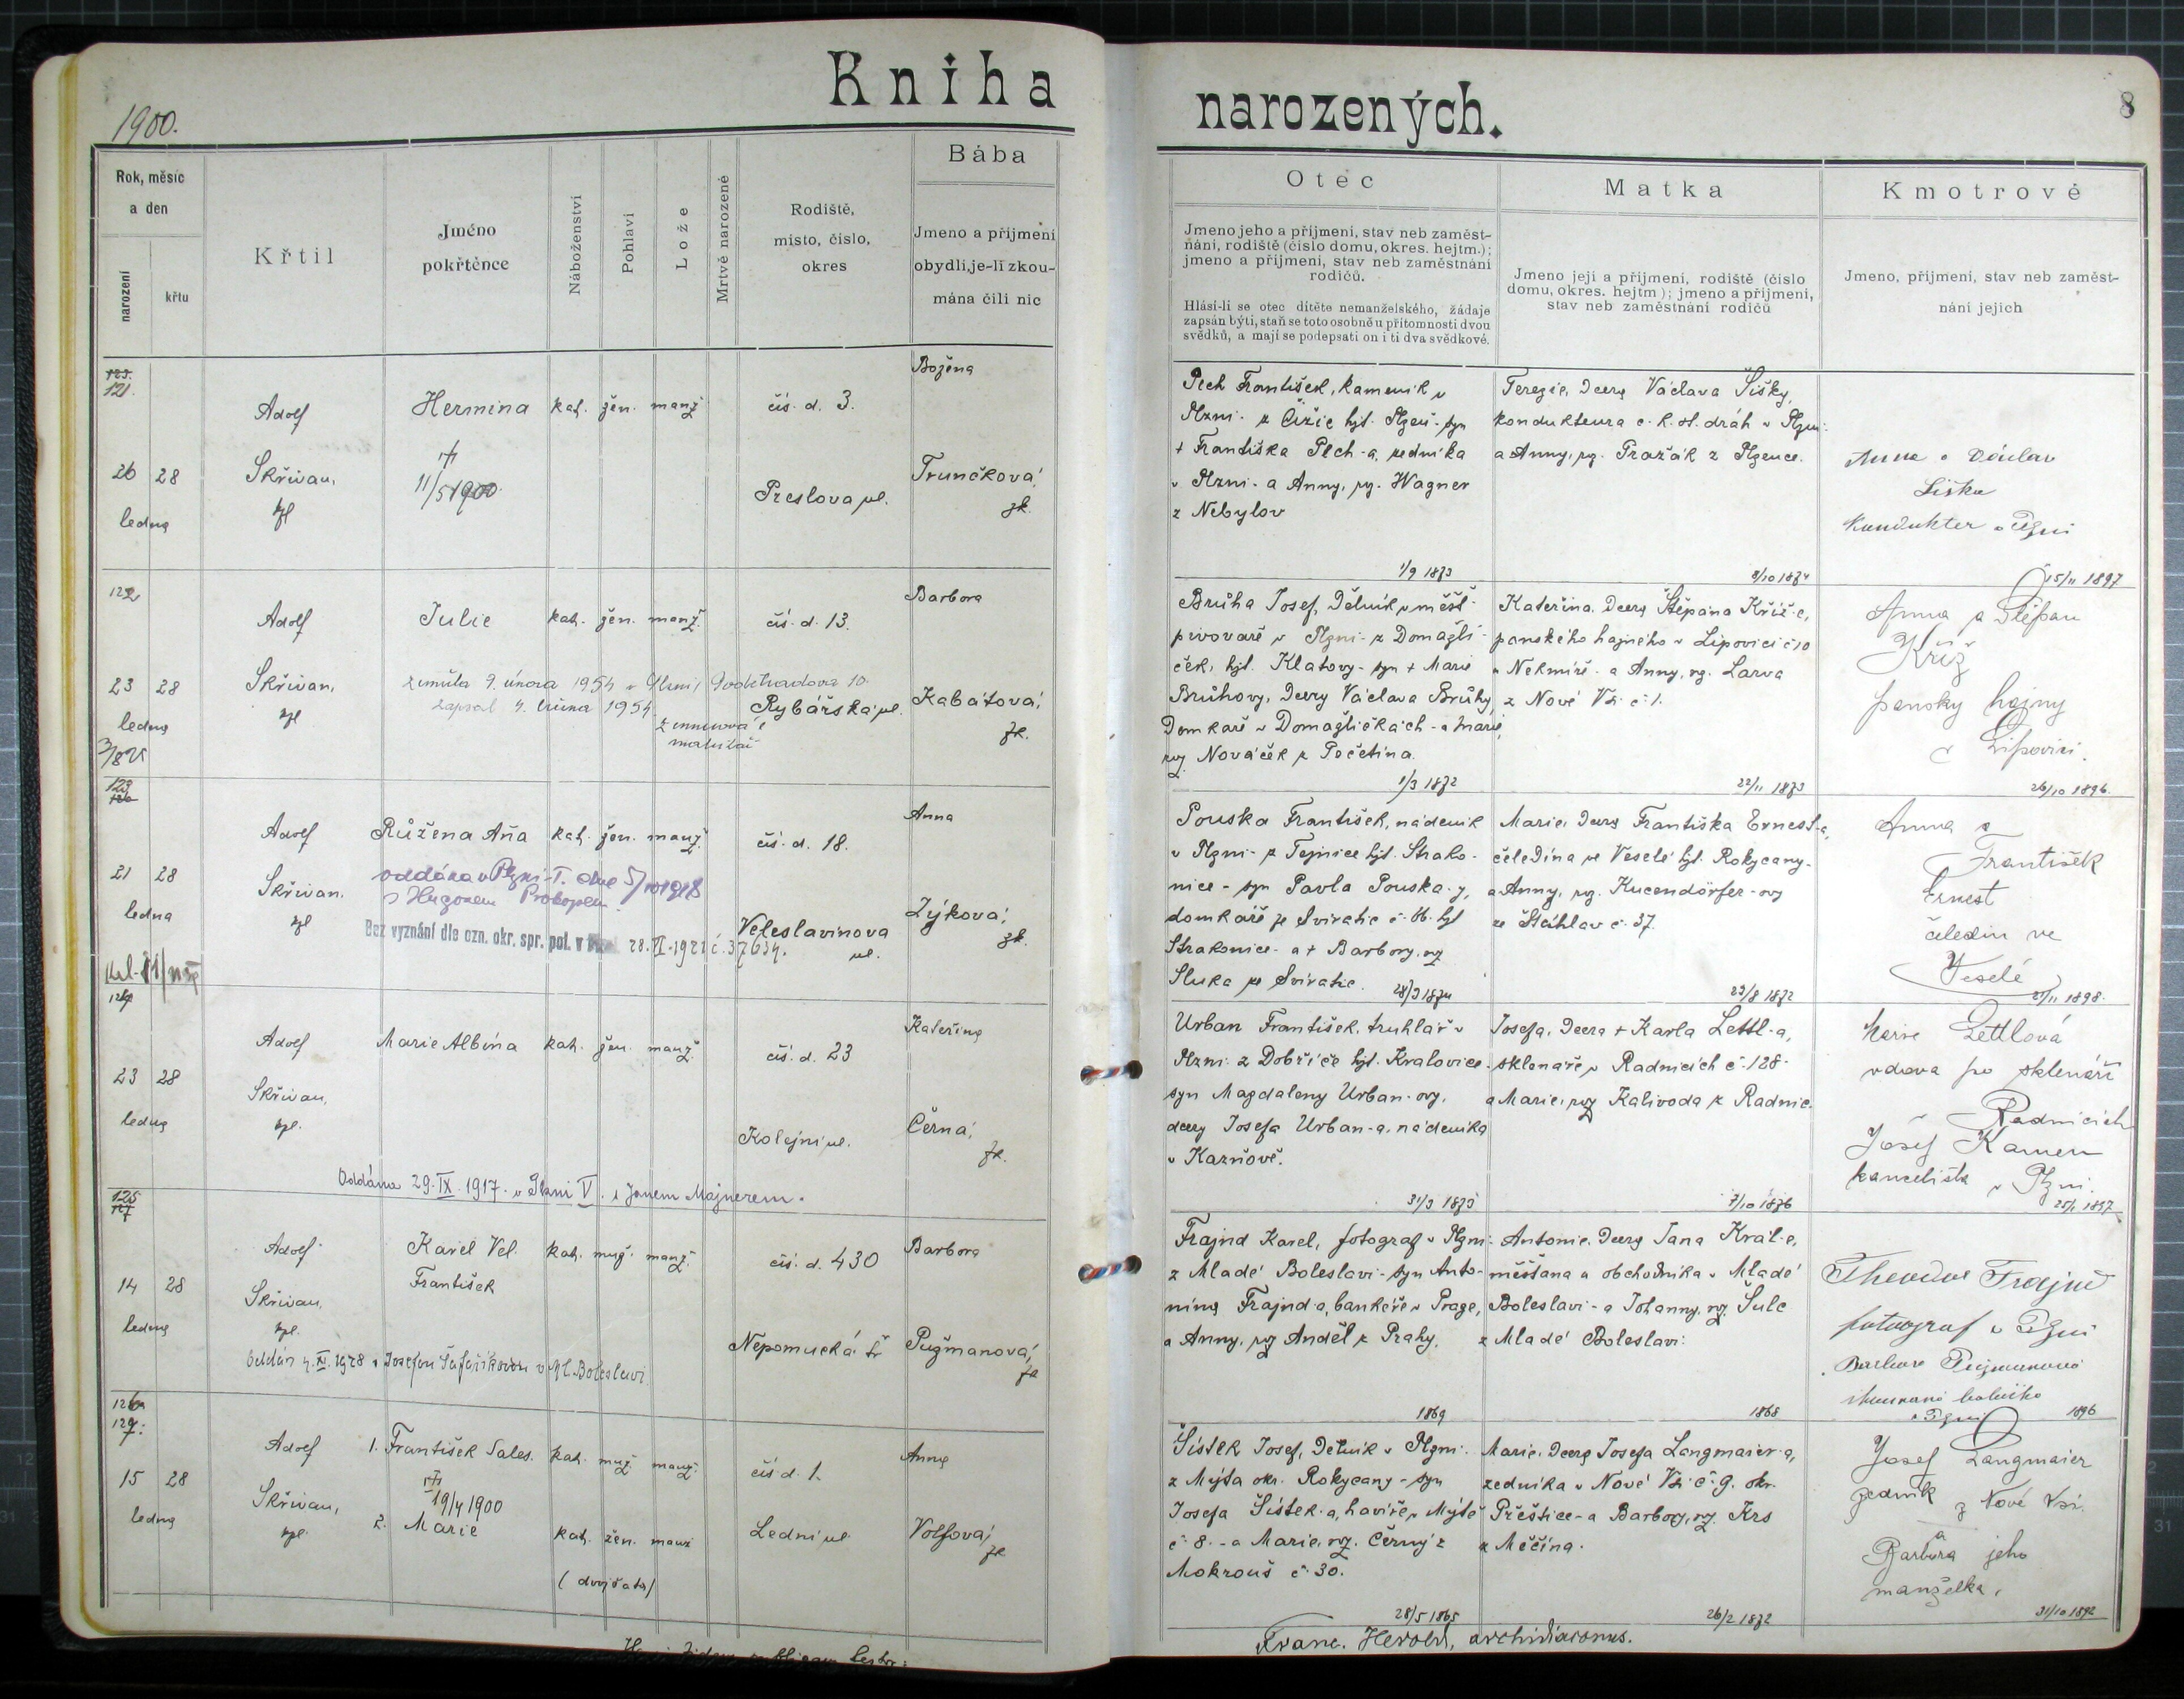 1900.
Kniha
narozených.
8
Rok, měsíc
a den
narození
křtu
Křtil
Jméno
pokřtěnce
Náboženství
Pohlaví
Lože
Mrtvě narozené
Rodiště,
místo, číslo,
okres
Bába
Jmeno a příjmení
obydlí, je-li zkou-
mána čili nic
Otec
Jmeno jeho a příjmení, stav neb zaměst-
nání, rodiště (číslo domu, okres. hejtm.);
jmeno a příjmení, stav neb zaměstnání
rodičů.
Hlásí-li se otec dítěte nemanželského, žádaje
zapsán býti, staň se toto osobně u přítomnosti dvou
svědků, a mají se podepsati on i ti dva svědkové.
Matka
Jmeno její a příjmení, rodiště (číslo
domu, okres. hejtm); jmeno a příjmení,
stav neb zaměstnání rodičů
Kmotrové
Jmeno, příjmení, stav neb zaměst-
nání jejich
121.
26 28
ledna
Adolf
Skřivan,
kpl
Hermina
11/5 1900
kat. žen. manž.
čís. d. 3.
Preslova ul.
Božena
Trunčková,
zk.
Pech František, kameník v
Plzni z Čižic hjt. Plzeň - syn
+ Františka Pech-a, zedníka
v Plzni a Anny, roz. Wagner
z Nebylov
1/9 1873
Terezie, dcera Václava Šišky,
kondukteura c. k. st. drah v Plzni
a Anny, roz. Pražák z Plzence.
8/10 1874
Anna a Václav
Šiška
Kondukter v Plzni
15/11 1897
122
23 28
ledna
Adolf
Skřivan,
kpl
Julie
zemřela 9. února 1954 v Plzni,
zapsal 4. března 1954
kat. žen. manž.
čís. d. 13.
Rybářská ul.
Barbora
Kabátová,
zk.
Brůha Josef, dělník v měšť.
pivovaře v Plzni z Domažli-
ček, hjt. Klatovy - syn + Marie
Brůhovy, dcery Václava Brůhy,
domkaře v Domažličkách a Marie,
roz. Nováček z Pečetína.
1/3 1872
Kateřina, dcera Štěpána Kříž-e,
panského hajného v Lipovici č 10
u Nekmíře a Anny, roz. Larva
z Nové Vsi č. 1.
22/11 1873
Anna a Štěpan
Kříž
panský hajný
v Lipovici.
26/10 1896.
123
21 28
ledna
Adolf
Skřivan.
kpl
Růžena Aňa
oddána v Plzni I. dne 5/10 1918
s Hugonem Prokopem
Bez vyznání dle ozn. okr. spr. pol. v 28.VI.1921 č. 37634.
kat. žen. manž.
čís. d. 18.
Veleslavínova
ul.
Anna
Zýková,
zk.
Pouska František, nádeník
v Plzni z Tejnice hjt. Strako-
nice - syn Pavla Pouska-y,
domkaře ze Sviratic č. 16. hjt
Strakonice a + Barbory, roz.
Sluka ze Sviratic.
Marie, dcera Františka Ernest-a,
čeledína ve Veselé hjt. Rokycany
a Anny, roz. Kucendörfer-ovy
ze Štáhlav č. 37.
23/8 1872
Anna a
František
Ernest
čeledín ve
Veselé
21/11 1898.
124
23 28
ledna
Adolf
Skřivan,
kpl.
Marie Albína
kat. žen. manž.
čís. d. 23
Kolejní ul.
Kateřina
Černá,
zk.
Oddána 29.IX.1917. v Plzni V. s Janem Majnerem.
Urban František, truhlář v
Plzni z Dobříče hjt. Kralovice
syn Magdaleny Urban-ovy,
dcery Josefa Urban-a, nádeníka
v Kaznově.
Josefa, dcera + Karla Lettl-a,
sklenáře v Radnicích č. 128
a Marie, roz. Kalivoda z Radnic.
7/10 1876
Marie Lettlová
vdova po sklenáři
Radnicích
Josef Kamen
kancelista v Plzni.
125
14 28
ledna
Adolf
Skřivan,
kpl.
Karel Vel.
František
kat. muž. manž.
čís. d. 430
Nepomucká tř
Barbora
Pužmanová,
zk
Oddán 4.XI.1928 s Josefou Šafaříkovou v Ml. Boleslavi.
Frajnd Karel, fotograf v Plzni
z Mladé Boleslavi - syn Anto-
nína Frajnd-a, bankéře v Praze,
a Anny, roz. Anděl z Prahy.
1869
Antonie, dcera Jana Král-e,
měšťana a obchodníka v Mladé
Boleslavi a Johanny, roz. Šulc
z Mladé Boleslavi.
1868
Theodor Frajnd
fotograf v Plzni
Barbora Pužmanová
zkoušená babička
v Plzni
1896
126
127.
15 28
ledna
Adolf
Skřivan,
kpl.
1. František Sales.
19/4 1900
2. Marie
kat. muž. manž.
kat. žen. manž
(dvojčata)
čís d. 1.
Lední ul
Anna
Volfová,
zk
Šístek Josef, dělník v Plzni
z Mýta okr. Rokycany - syn
Josefa Šístek-a, havíře v Mýtě
č. 8. a Marie, roz. Černý z
Mokrouš č. 30.
28/5 1865
Marie, dcera Josefa Langmaier-a,
zedníka v Nové Vsi č. 9. okr.
Přeštice a Barbory, roz. Krs
z Měčína.
26/2 1872
Josef Langmaier
zedník z Nové Vsi.
a
Barbora jeho
manželka.
31/10 1892
Franc. Herold, archidiaconus.